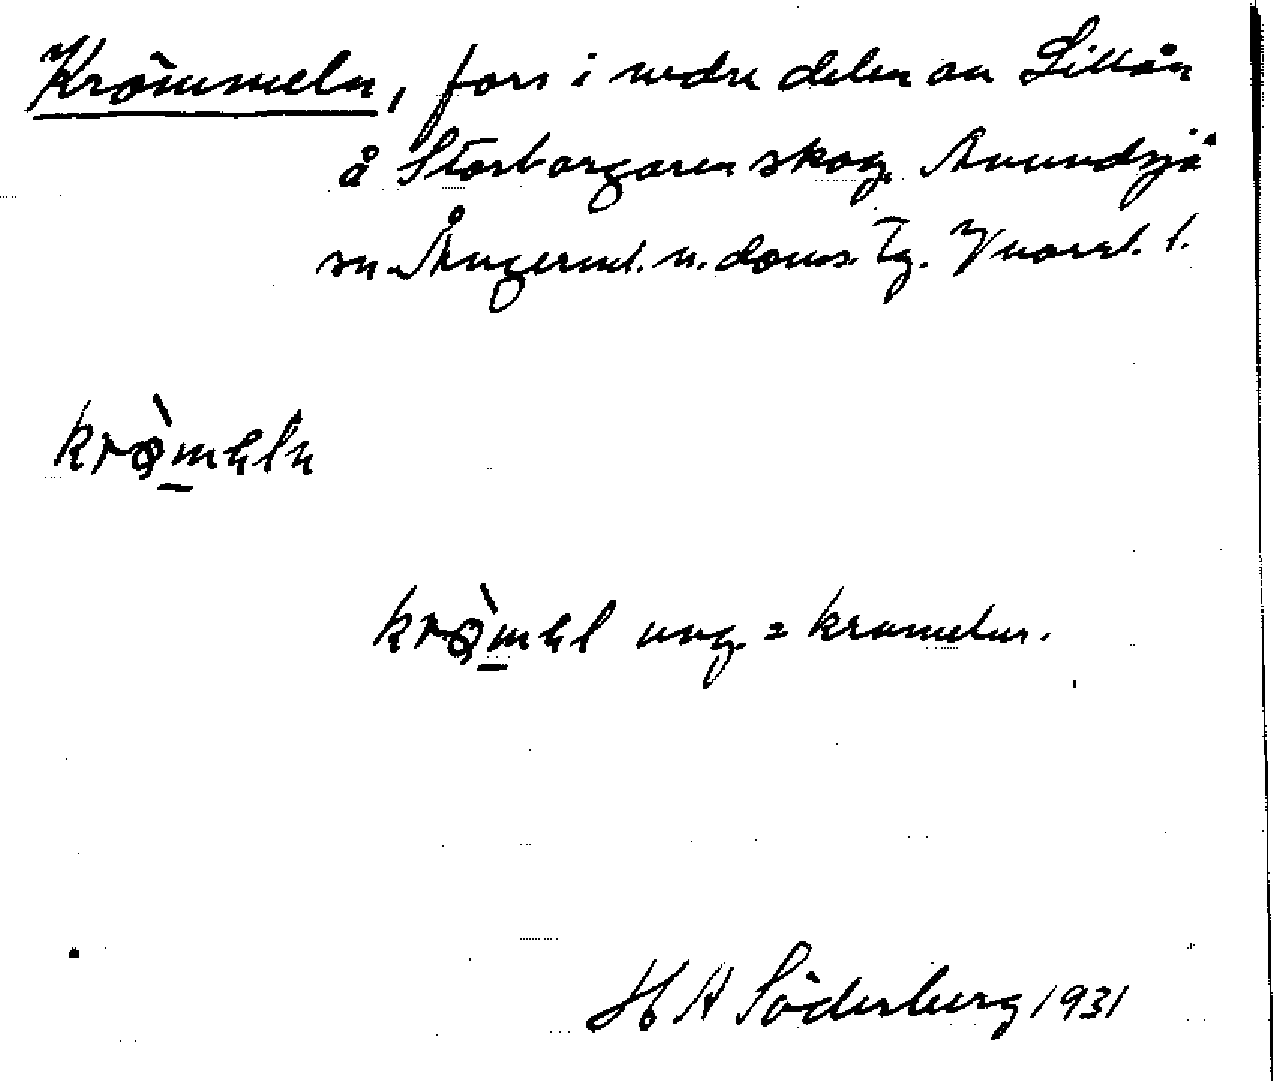 Krömmeln, fors i nedre delen av Lillån
å Storborgaren skog, Anundsjö
sn. Ångerml. n. doms. Tg.
krömeln
krömel ung. = kramelur.
H A Söderberg 1931